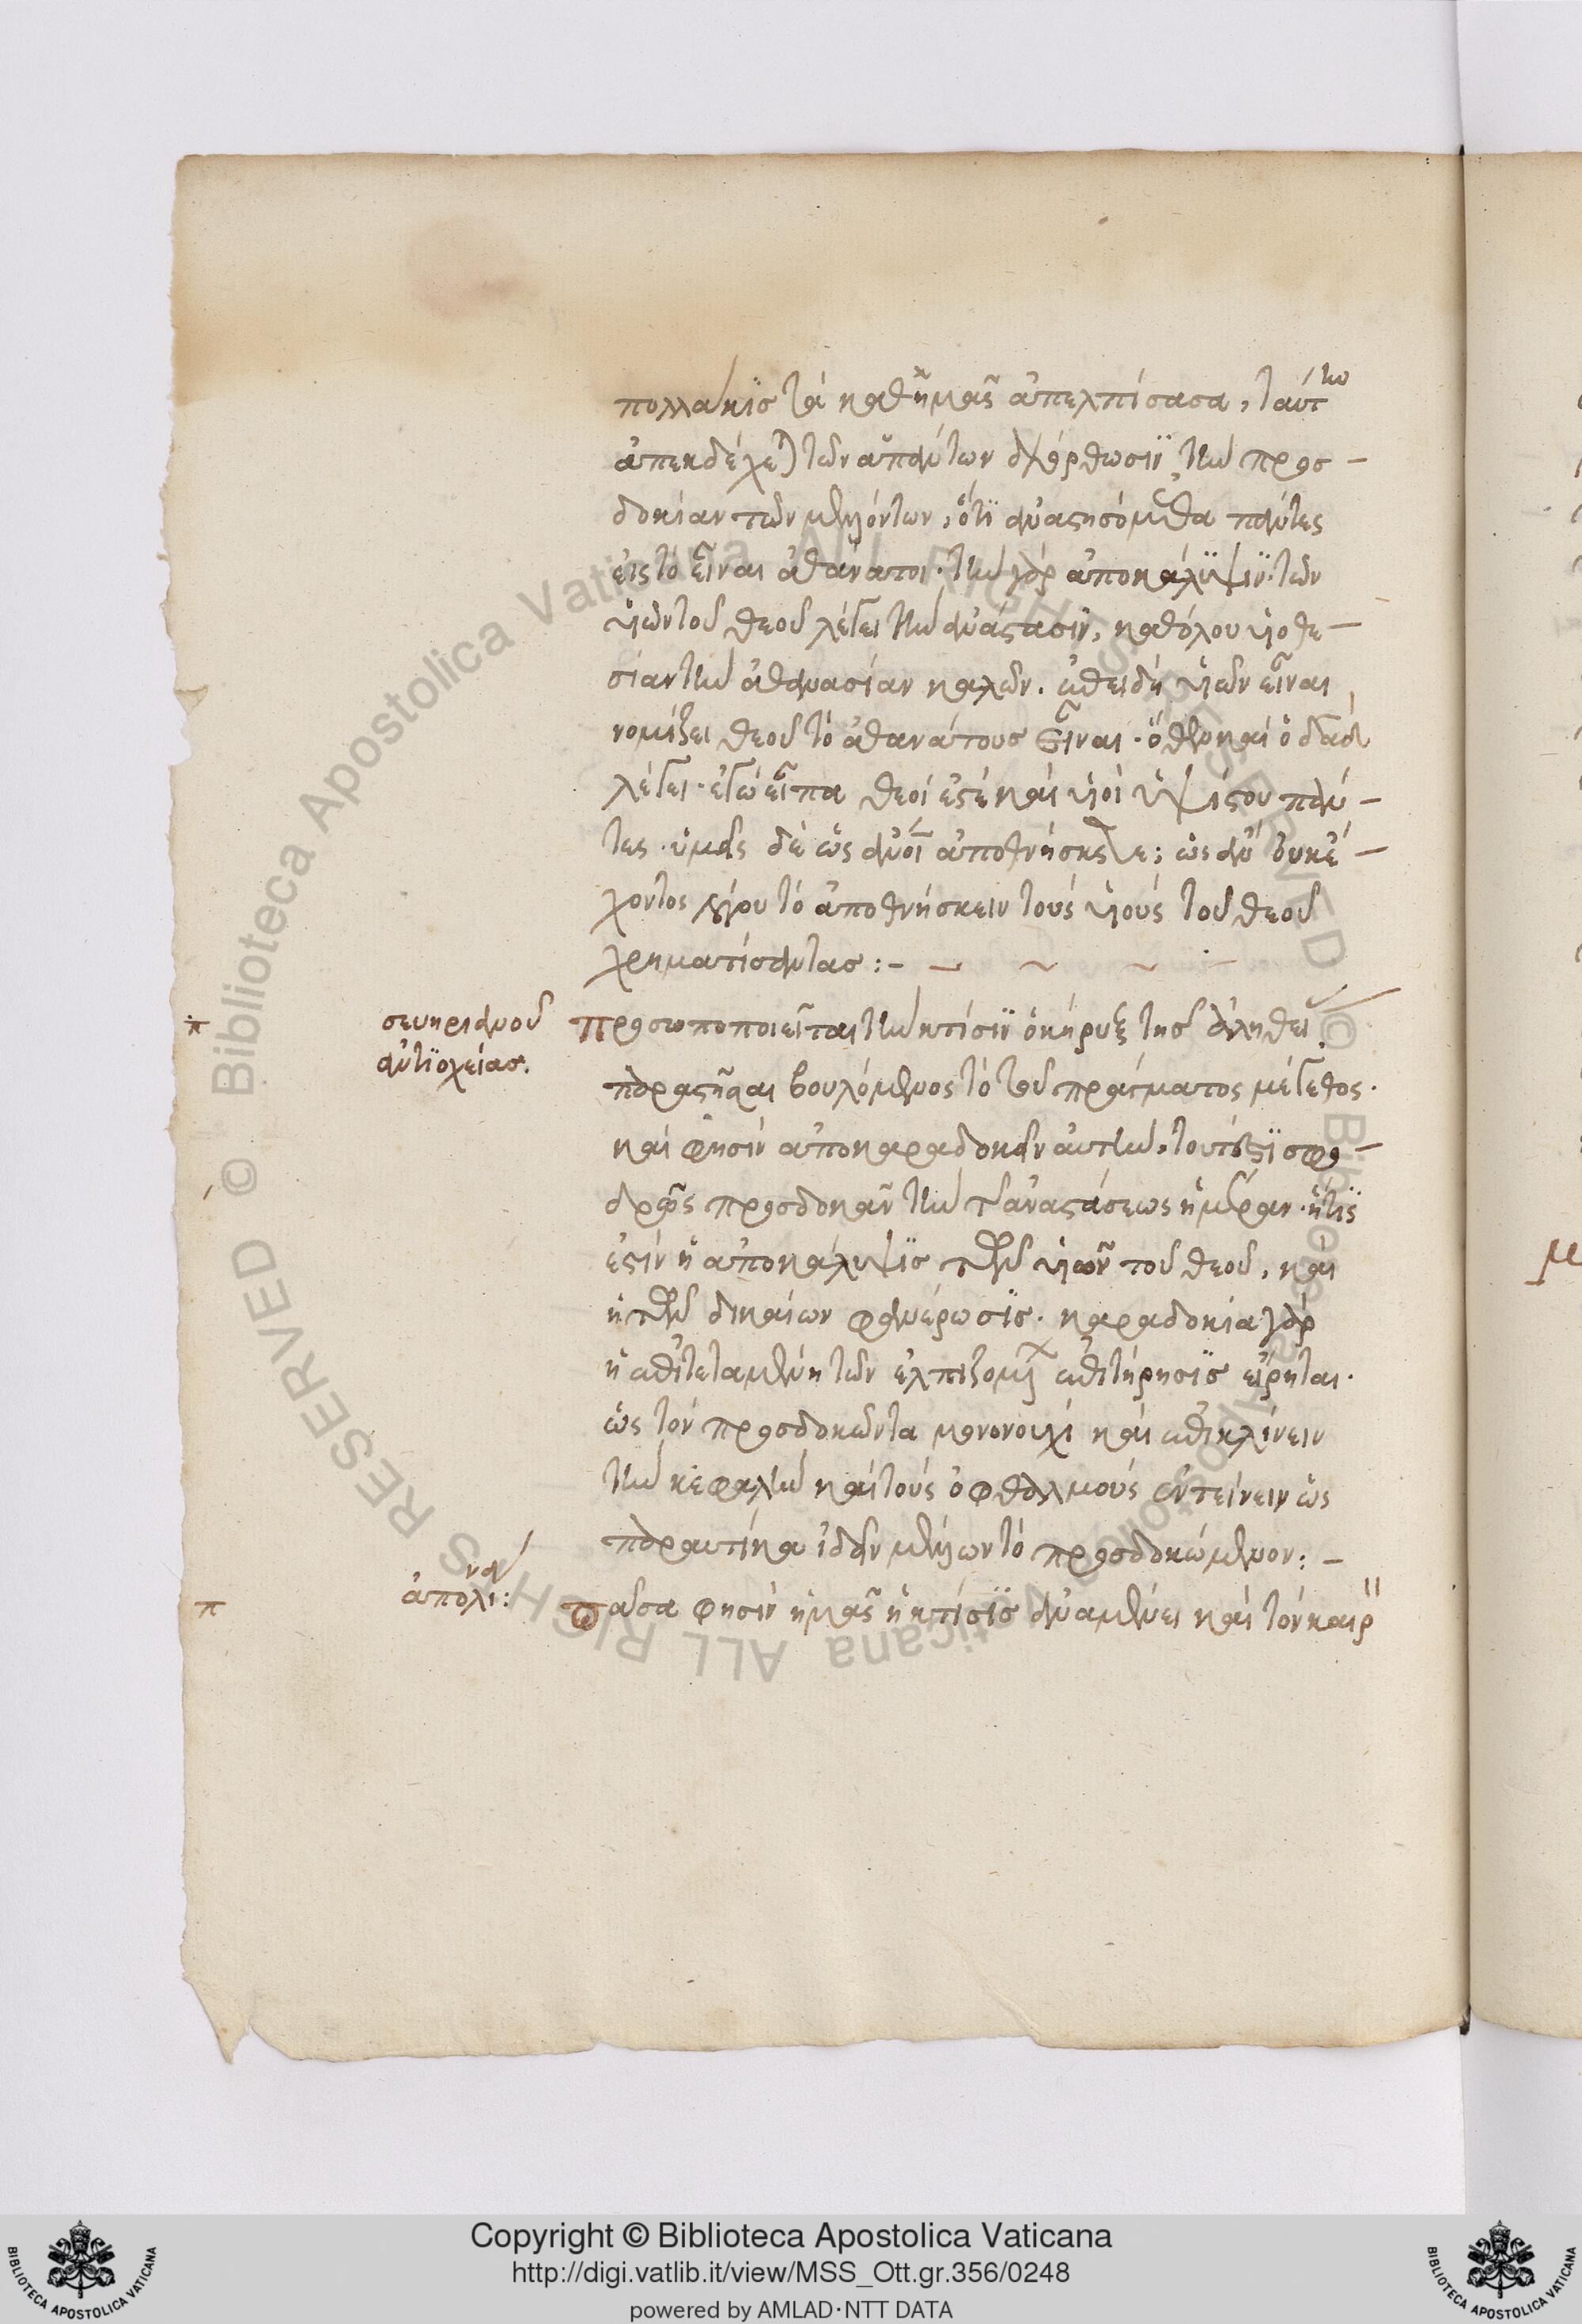 πολλάκις τὰ καθ' ἡμᾶς ἀπελπίσασα, ταύτην
ἀπεκδέχεται τῶν ἁπάντων διόρθωσιν τὴν προσ–
δοκίαν τῶν μελλόντων, ὅτι ἀναστησόμεθα πάντες
εἰς τὸ εἶναι ἀθάνατοι. τὴν γὰρ ἀποκάλυψιν τῶν
υἱῶν τοῦ θεοῦ λέγει τὴν ἀνάστασιν, καθόλου υἱοθε–
σίαν τὴν ἀθανασίαν καλῶν. ἐπειδὴ υἱῶν εἶναι
νομίζει θεοῦ τὸ ἀθανάτους εἶναι. ὅθεν καὶ ὁ δαδ
λέγει. ἐγὼ εἶπα θεοί ἐστέ καὶ υἱοὶ ὑψίστου πάν–
τες. ὑμεῖς δὲ ὡς ἄνοι ἀποθνήσκετε; ὡς ἂν οὐκ ἔ–
χοντος λόγου τὸ ἀποθνήσκειν τοὺς υἱοὺς τοῦ θεοῦ
χρηματίσαντας :–
σευηριανοῦ
ἀντιοχείας.
προσωποποιεῖται τὴν κτίσιν ὁ κήρυξ τῆς ἀληθείας
παραστῆσαι βουλόμενος τὸ τοῦ πράγματος μέγεθος.
καί φησιν ἀποκαραδοκεῖν αὐτήν, τουτέστι σφο–
δρῶς προσδοκᾶν τὴν τῆς ἀναστάσεως ἡμέραν. ἥτις
ἐστὶν ἡ ἀποκάλυψις τῶν υἱῶν τοῦ θεοῦ, καὶ
ἡ τῶν δικαίων φανέρωσις. καραδοκία γὰρ
ἡ ἐπιτεταμένη τῶν ἐλπιζομένων ἐπιτήρησις εἴρηται.
ὡς τὸν προσδοκῶντα μονονουχὶ καὶ ἐπικλίνειν
τὴν κεφαλὴν καὶ τοὺς ὀφθαλμοὺς ἐντείνειν ὡς
παραυτίκα ἰδεῖν μέλλων τὸ προσδοκώμενον :–
ἀπολιναρ :
πᾶσα φησὶν ἡμᾶς ἡ κτίσις ἀναμένει καὶ τὸν καιρ
Copyright © Biblioteca Apostolica Vaticana
http://digi.vatlib.it/view/MSS_Ott.gr.356/0248
powered by AMLAD·NTT DATA